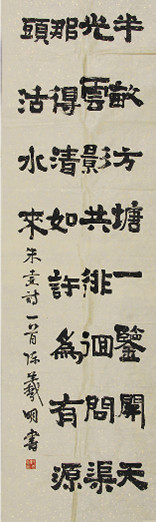 半畝方塘一鑒開天
光雲影共徘徊問渠
那得清如許為有源
頭活水來
朱熹詩一首陈羲明書